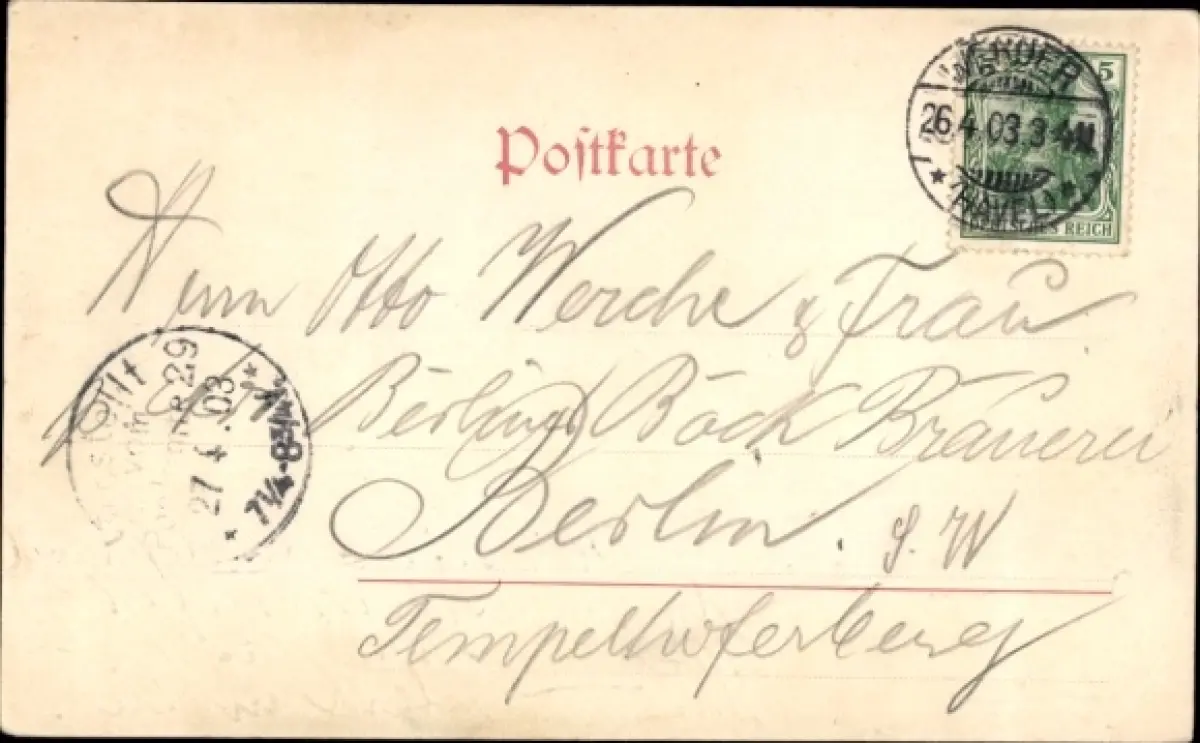 Postkarte
WERDER
26.4.03.3-4N.
* (HAVEL) *
5
DEUTSCHES REICH
Herrn Otto Werche & Frau
Berliner Bock Brauerei
Berlin. S. W
Tempelhoferberg
Bestellt
vom
Postamte 29
27.4.03
7¼-8¾V.